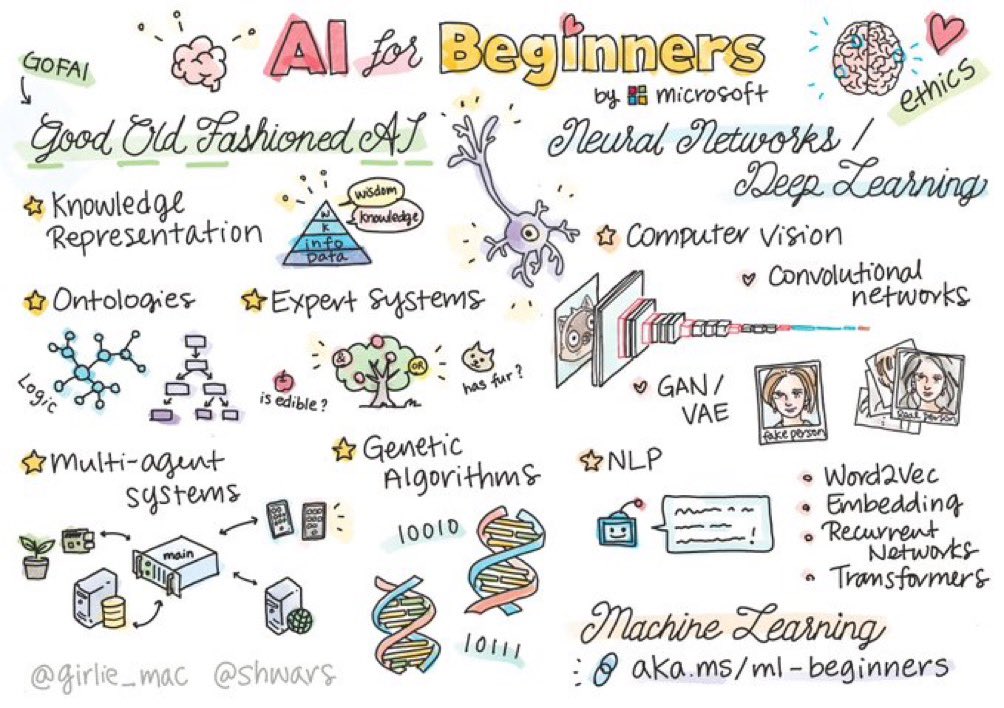 AI for Beginners
by microsoft
ethics
GOFAI
Good Old Fashioned AI
Knowledge
Representation
wisdom
knowledge
W
K
info
Data
Ontologies
Logic
Expert Systems
&
OR
is edible?
has fur?
Multi-agent
systems
main
Genetic
Algorithms
10010
10111
Neural Networks /
Deep Learning
Computer Vision
Convolutional
networks
GAN/
VAE
fake person
real person
NLP
Word2Vec
Embedding
Recurrent
Networks
Transformers
Machine Learning
aka.ms/ml-beginners
@girlie_mac @shwars